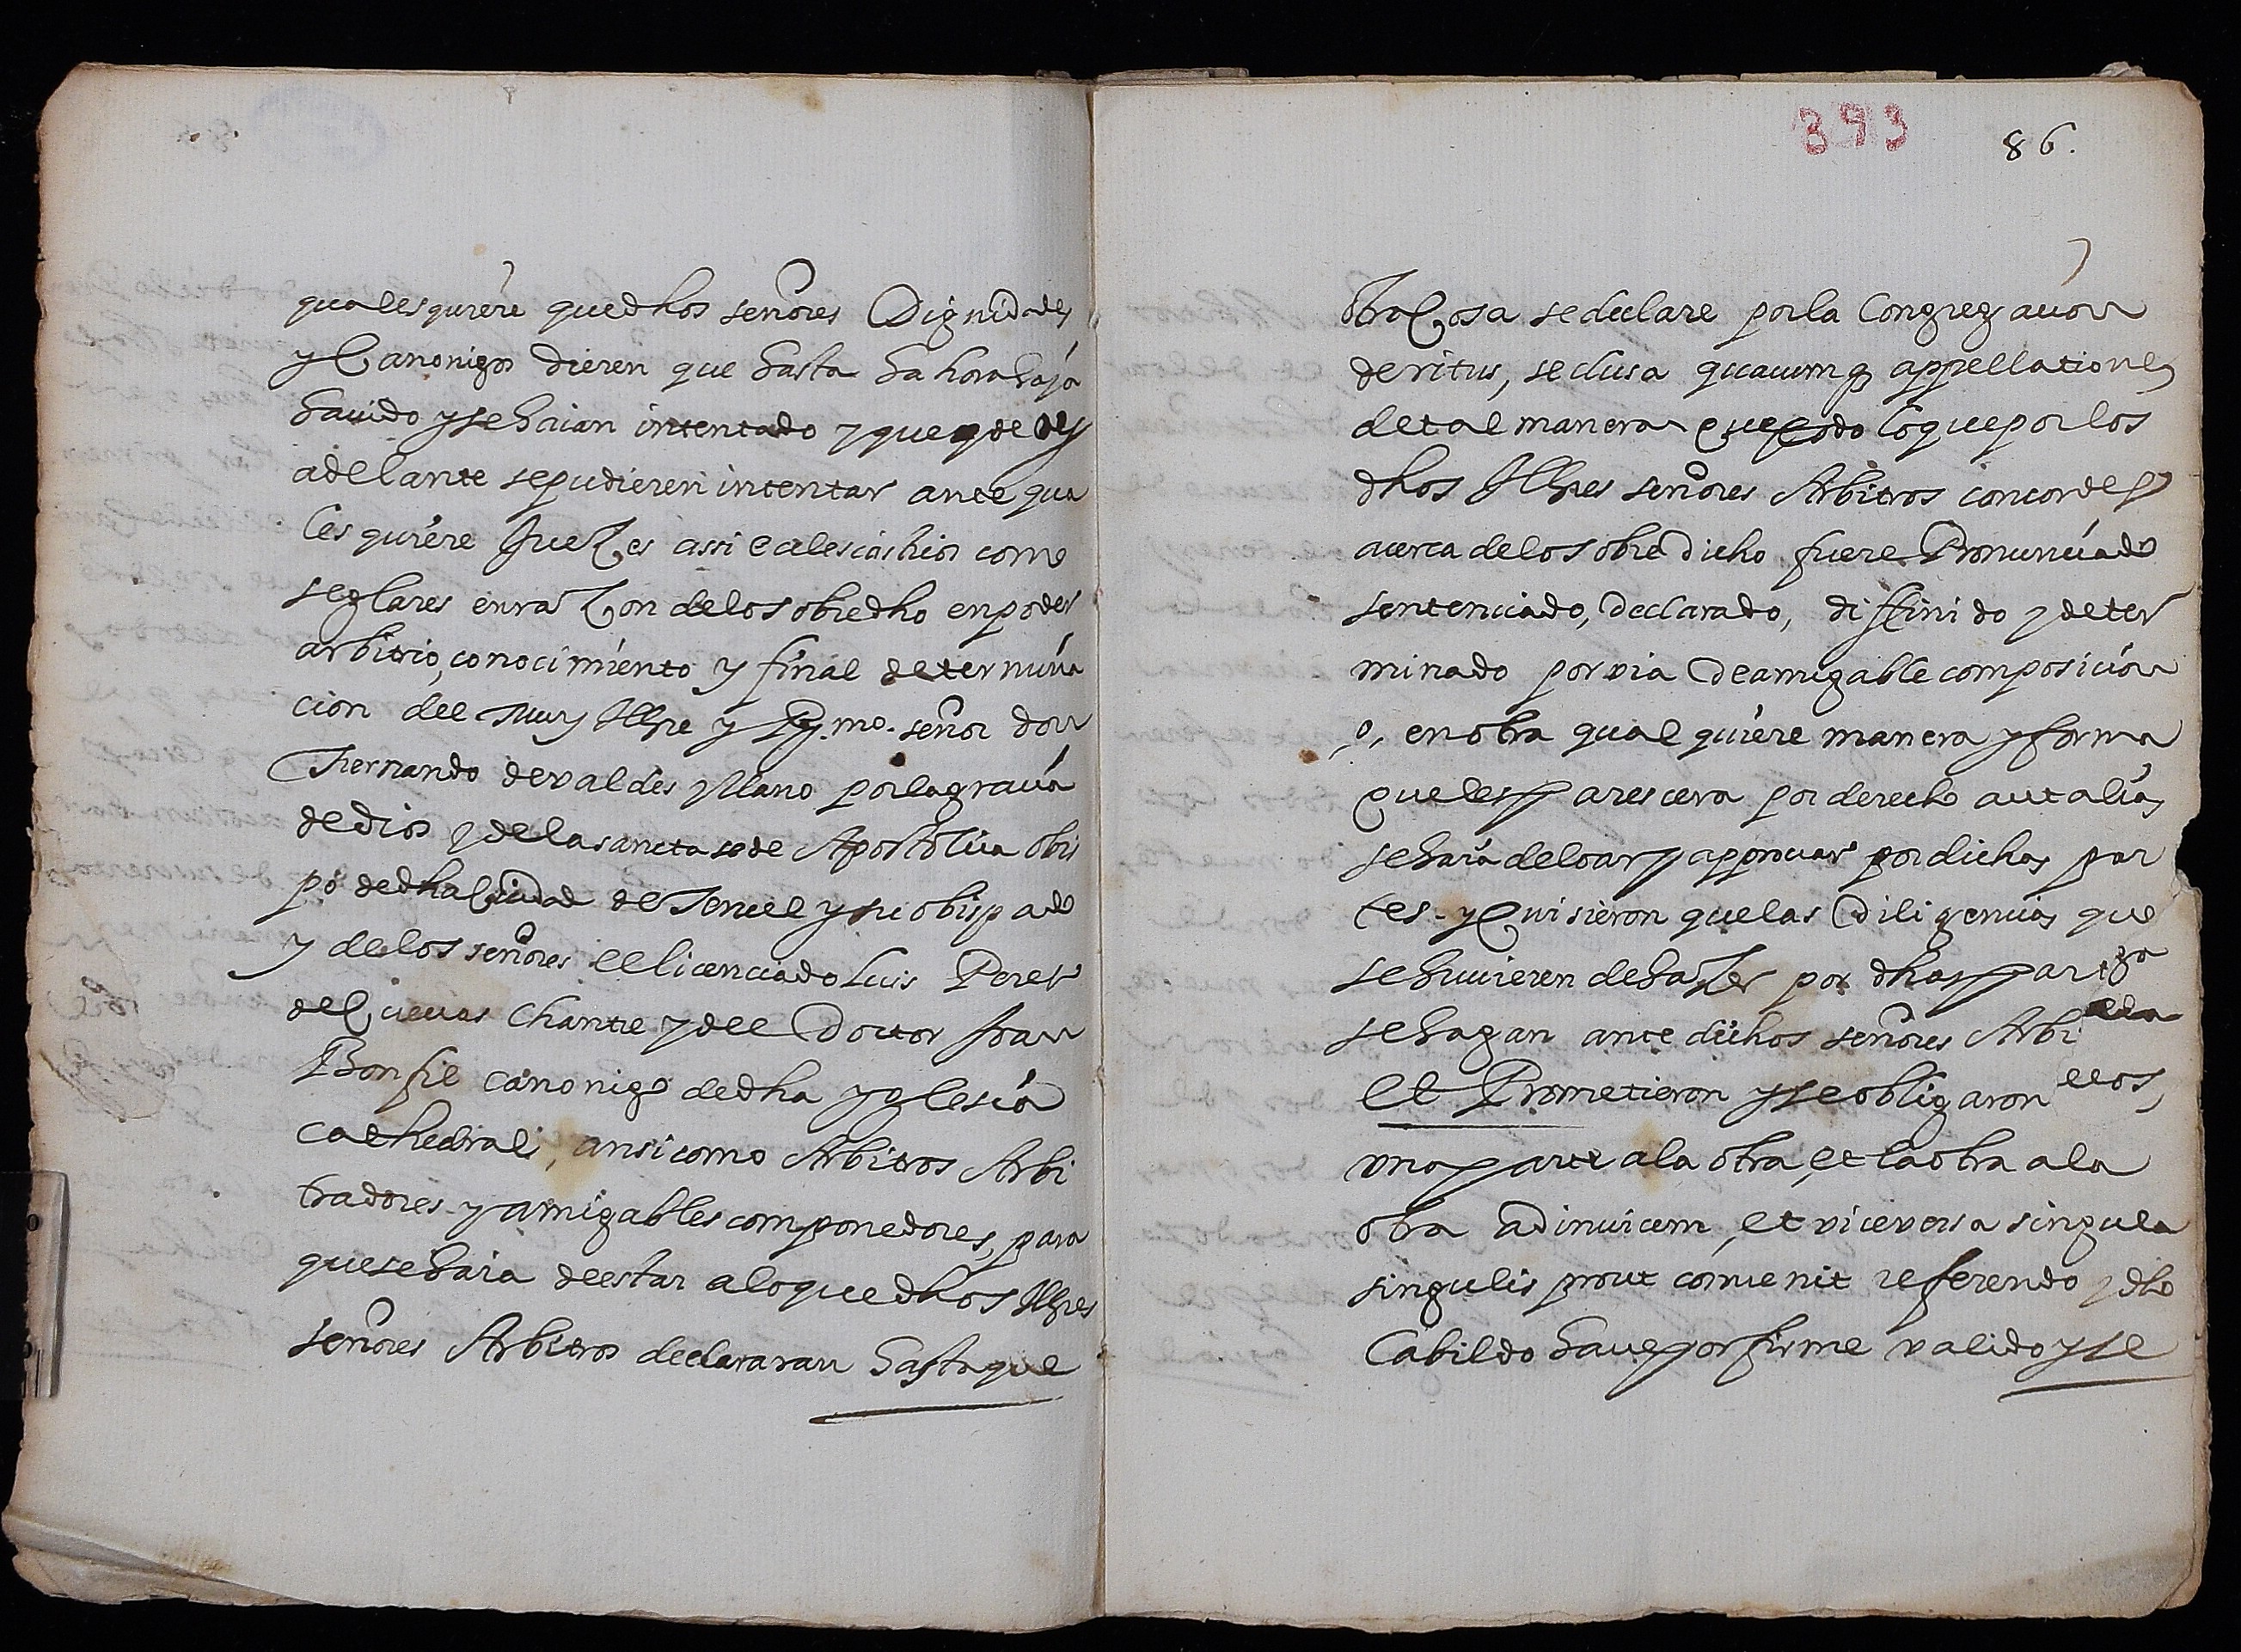 qualesquiere que dhos señores Dignidades
y Canonigos dieren que hasta hahora haja
hauido y se haian intentado y que de oy
adelante se pudieren intentar ante qua
lesquiere Juezes assi eclesiasticos como
seglares en razon de lo sobredho en poder
arbitrio, conocimiento y final determina
cion del Muy Illre y Rmo. señor don
Fernando de valdes y llano por la gracia
de dios y de la sancta sede Apostolica obis
po de dha Ciudad de Teruel y su obispado
y de los señores el licenciado Luis Perez
de Cueuas Chantre y del Doctor Joan
Bonfil canonigo de dha yglesia
cathedral, ansi como Arbitros Arbi
tradores y amigables componedores, para
que se haia de estar a lo que dhos Illres
señores Arbitros declararan hasta que
393
86.
otra Cosa se declare por la Congregacion
de ritus, seclusa quacumq appellatione,
de tal manera que todo lo que por los
dhos Illres señores Arbitros concordes
acerca de lo sobredicho fuere Pronunciado
sentenciado, declarado, diffinido y deter
minado por via de amigable composicion
, o, en otra qualquiere manera y forma
que les parescera por derecho aut alias
se hara de loar y approuar por dichas par
tes. y Quisieron que las Diligencias que
se huuieren de hazer por dhas partes
se hagan ante dichos señores Arbi
et Prometieron y se obligaron ellos,
una parte a la otra, et la otra a la
otra ad inuicem, et viceversa singula
singulis prout conuenit referendo y dho
Cabildo haue por firme valido y se